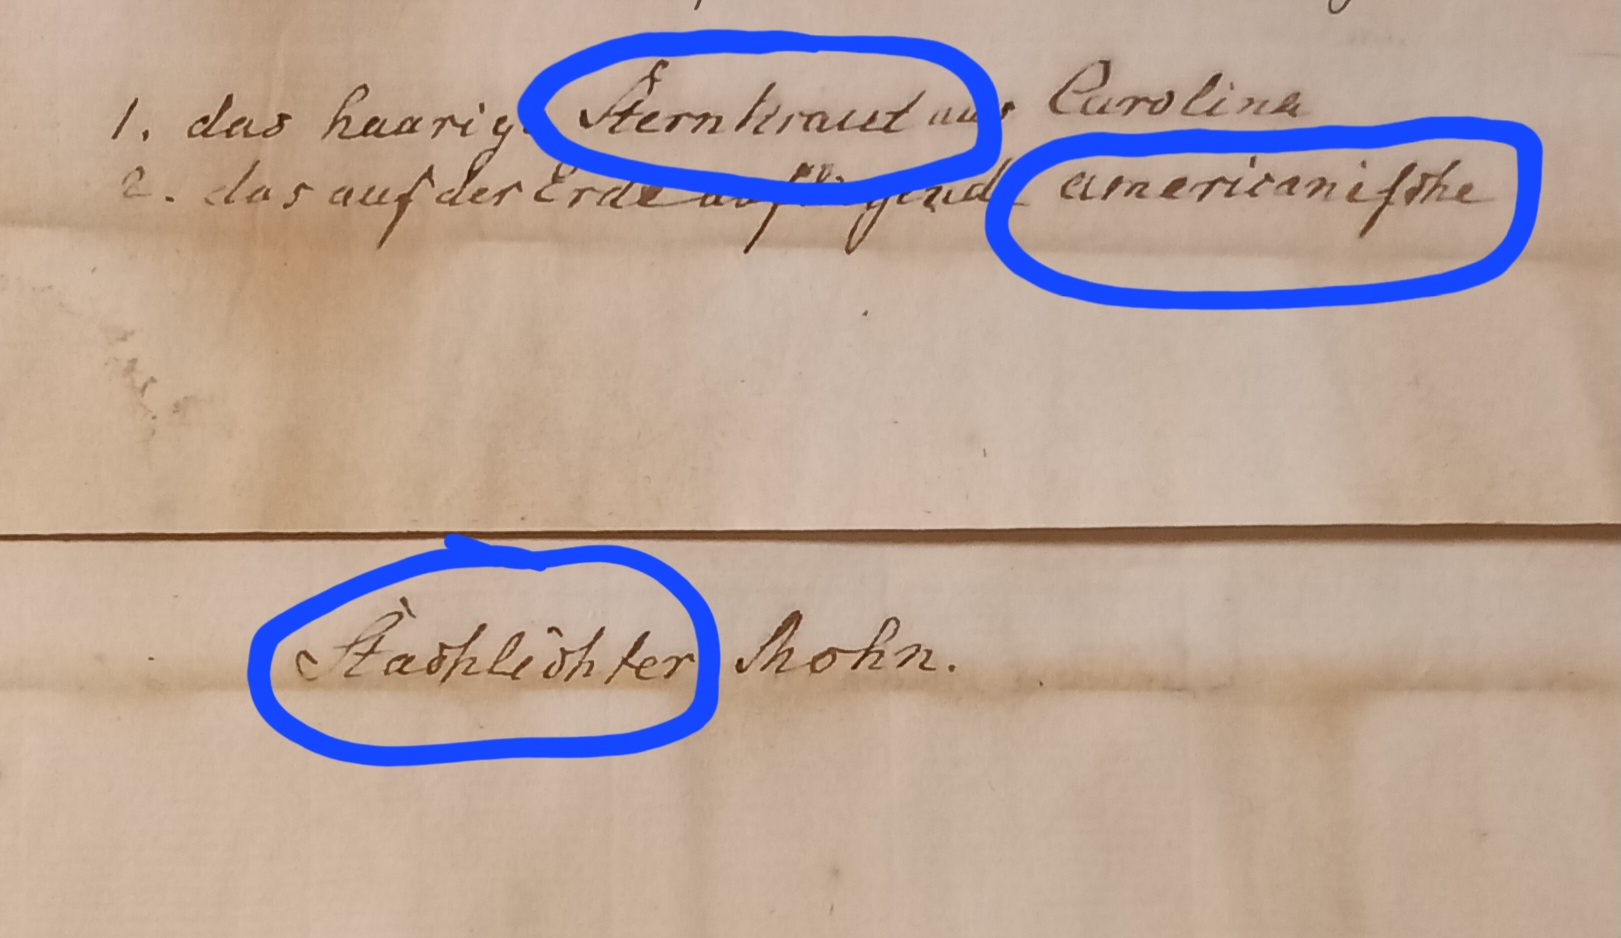 1. das haarige Sternkraut aus Carolina
2. das auf der Erde aufliegende americanische
Stachlichter Mohn.